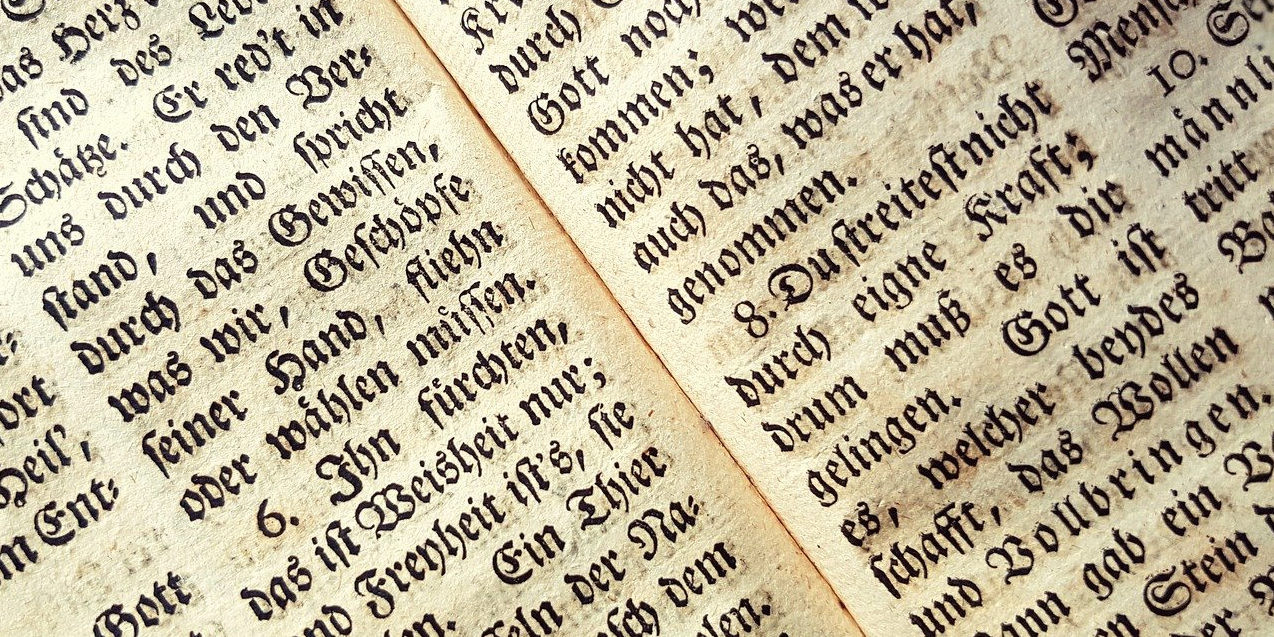 Heil',
Ent-
Gott
das Herz
sind des
Schätze. Er red't in
uns durch den Ver-
stand, und spricht
durch das Gewissen,
was wir, Geschöpfe
seiner Hand, fliehn
oder wählen müssen.
6. Ihn fürchten,
das ist Weisheit nur;
Freyheit ist's, sie
Ein Thier
der Na-
dem
durch
Gott noch
kommen;
nicht hat, dem
auch das, was er hat,
genommen.
8. Du streitest nicht
durch eigne Kraft;
drum muß es dir
gelingen. Gott ist
es, welcher beydes
schafft, das Wollen
und Vollbringen.
gab ein
Stein
10.
tritt